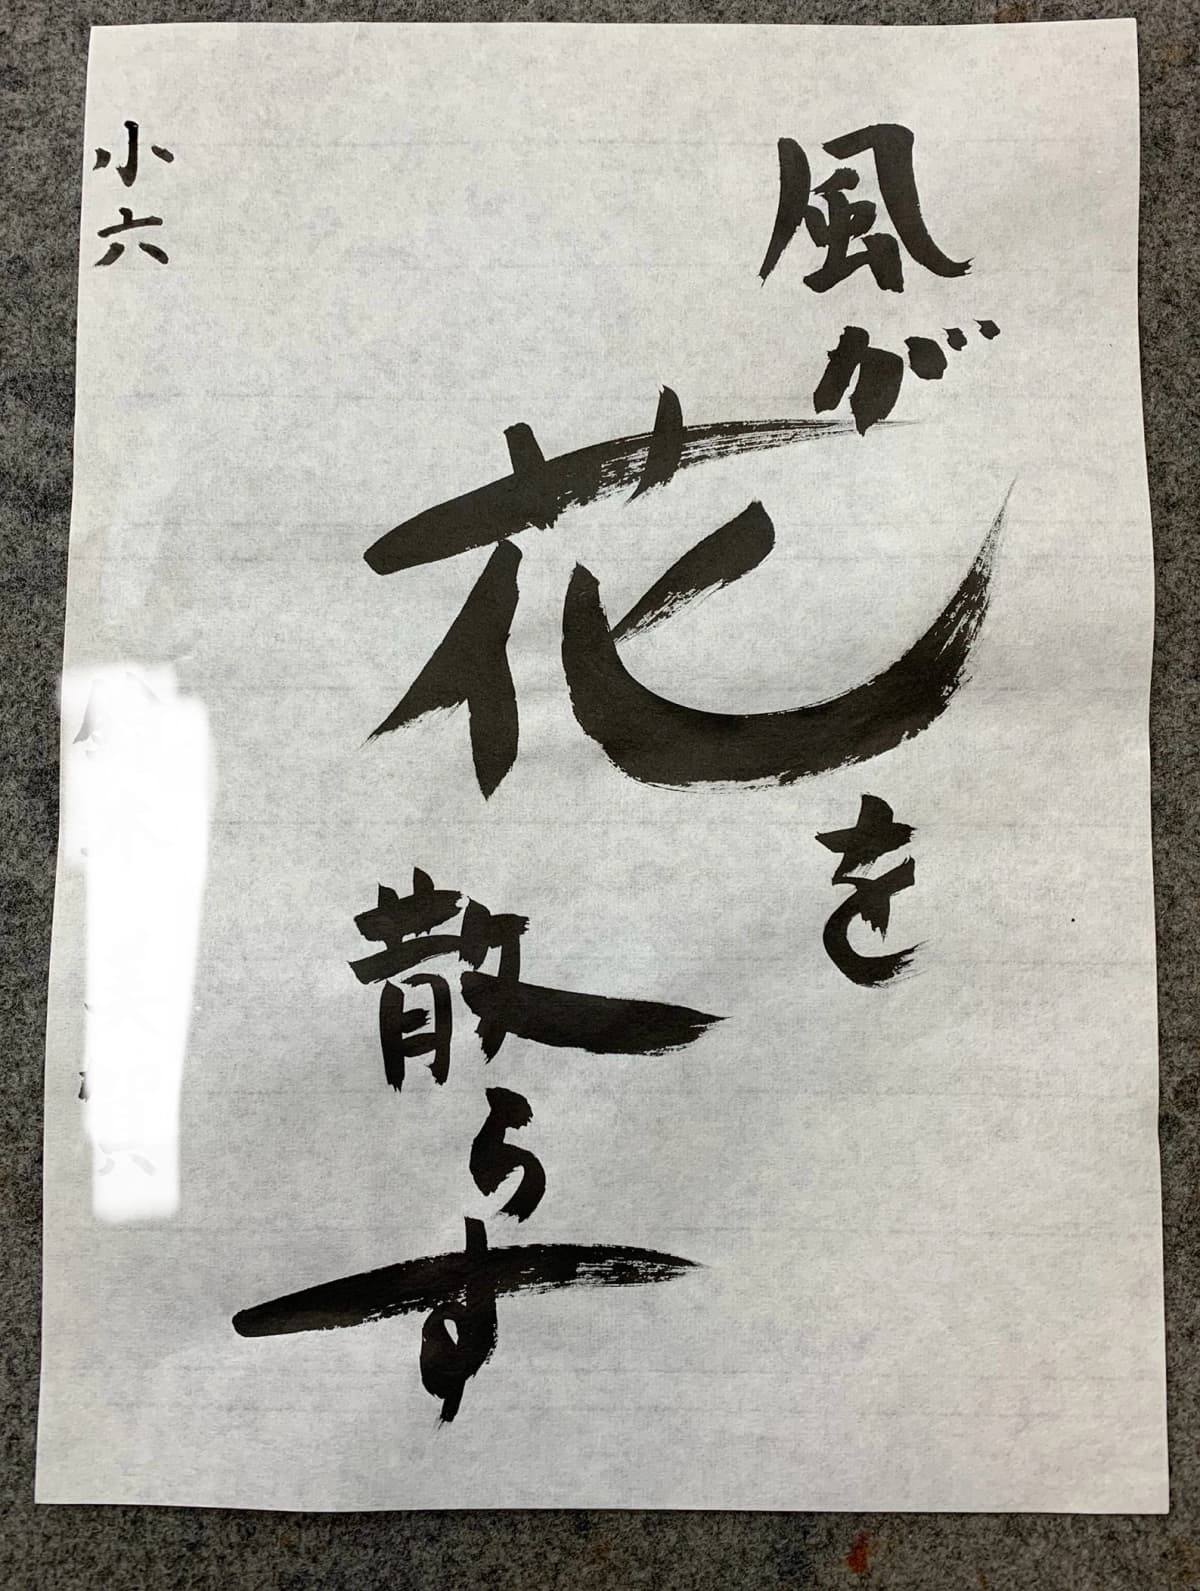 風が
花を
散らす
小六